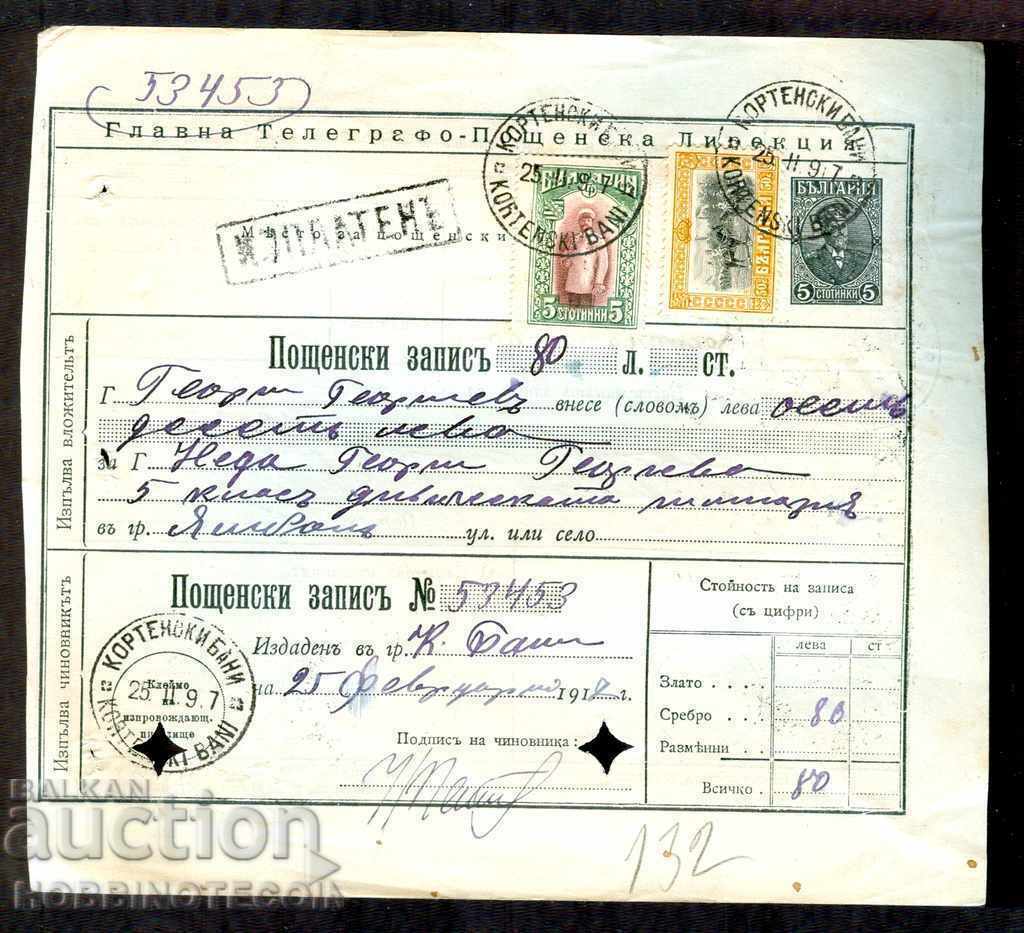 53453
Главна Телеграфо-Пощенска Дирекция
КОРТЕНСКИ БАНИ
25. II 9. 7
KORTENSKI BANI
КОРТЕНСКИ БАНИ
25. II 9. 7
KORTENSKI BANI
ИЗПЛАТЕНЪ
Място за пощенски
БЪЛГАРИЯ
5 СТОТИНКИ 5
БЪЛГАРИЯ
5 СТОТИНКИ 5
Изпълва вложительтъ
Пощенски записъ 80 л. ст.
Г Георги Георгиевъ внесе (словомъ) лева осемь
десеть лева
за Г Неда Георги Георгиева
5 класъ девическата гимназия
въ гр. Ямболъ ул. или село
Изпълва чиновникътъ
Пощенски записъ № 53453
Издаденъ въ гр. К. Бани
на 25 Февруарий 1917 г.
КОРТЕНСКИ БАНИ
25. II 9. 7
KORTENSKI BANI
Клеймо
на
изпровождающ.
Подпись на чиновника:
Стойность на записа
(съ цифри)
лева ст
Злато
Сребро 80
Размѣнни
Всичко 80
132
BALKAN
auction
HOBBINOTECOIK